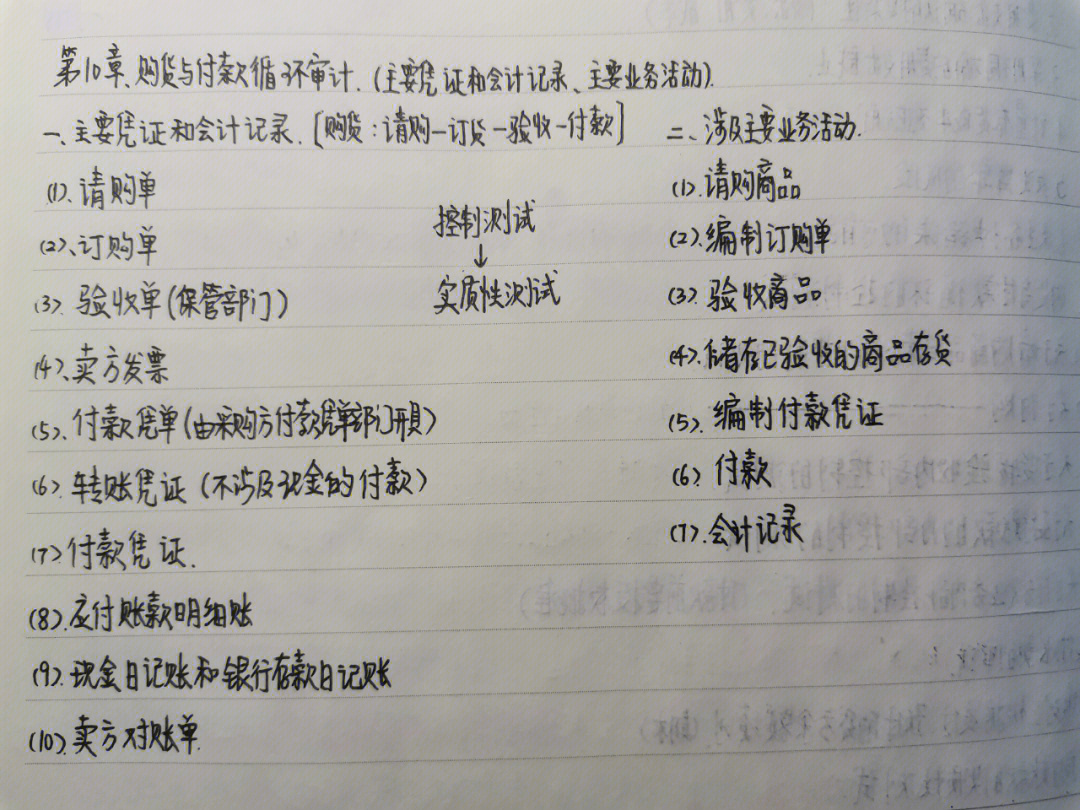 第10章、购货与付款循环审计.(主要凭证和会计记录、主要业务活动).
一、主要凭证和会计记录.[购货:请购-订货-验收-付款]
(1).请购单
(2)、订购单
(3).验收单(保管部门)
(4)、卖方发票
(5).付款凭单(由采购方付款凭单部门开具)
(6).转账凭证(不涉及现金的付款)
(7).付款凭证.
(8).应付账款明细账
(9).现金日记账和银行存款日记账
(10).卖方对账单.
控制测试
↓
实质性测试
二、涉及主要业务活动.
(1).请购商品
(2).编制订购单
(3).验收商品
(4).储存已验收的商品存货
(5).编制付款凭证
(6).付款
(7).会计记录